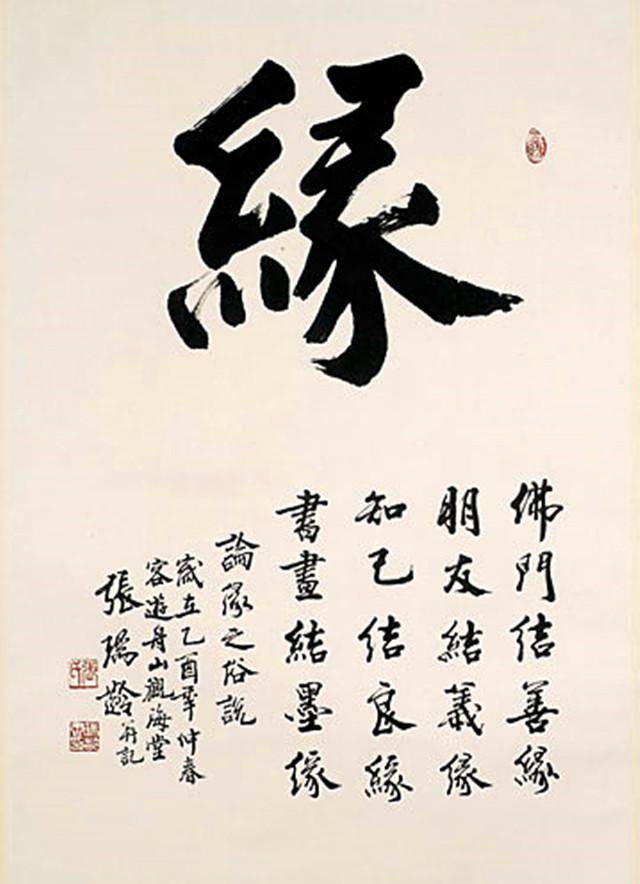 緣
佛門结善緣
朋友結義缘
知己结良緣
書畫結墨缘
論缘之俗說
歲在乙酉年仲春
客遊舟山觀海堂
張瑞齡并記